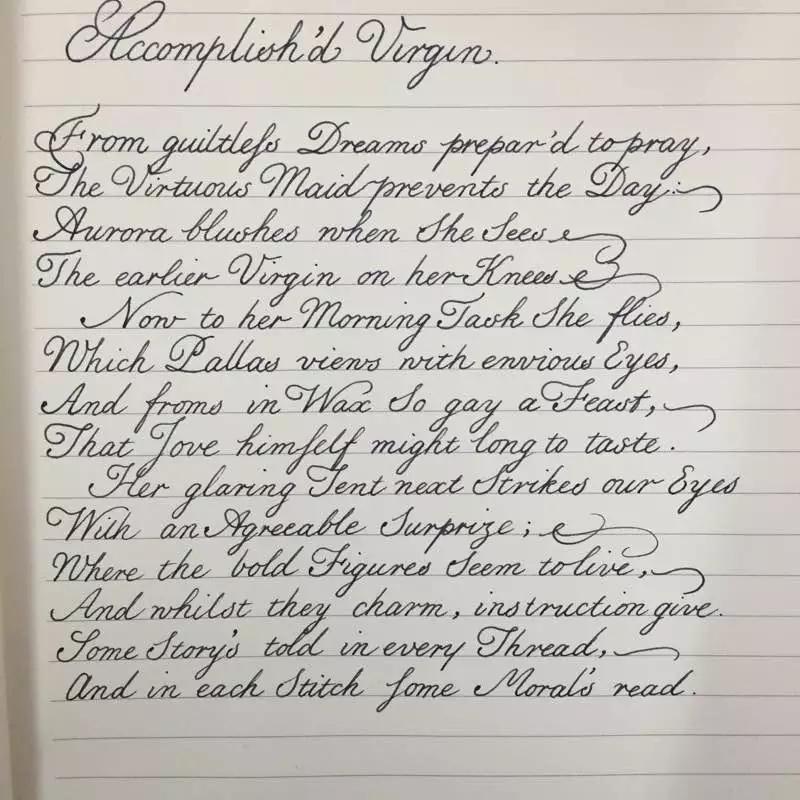 Accomplish'd Virgin.
From guiltleſs Dreams prepar'd to pray,
The Virtuous Maid prevents the Day:
Aurora blushes when She Sees
The earlier Virgin on her Knees
Now to her Morning Task She flies,
Which Pallas views with envious Eyes,
And froms in Wax So gay a Feast,
That Jove himſelf might long to taste.
Her glaring Tent next Strikes our Eyes
With an Agreeable Surprize;
Where the bold Figures Seem to live,
And whilst they charm, instruction give.
Some Story's told in every Thread,
And in each Stitch ſome Moral's read.